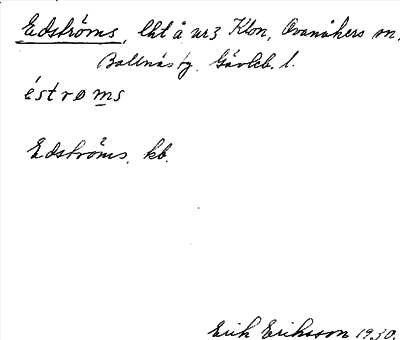 Edströms, lht å nr 3 Klon, Ovanåkers sn,
Bollnäs tg. Gävleb. l.
éstrøms
Edströms, kb.
Erik Eriksson 1930.